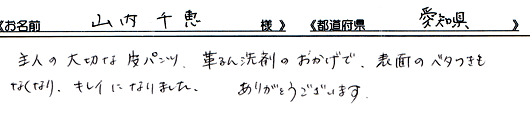 《お名前 山内千恵 様》 《都道府県 愛知県 》
主人の大切な皮パンツ、革るん洗剤のおかげで、表面のベタつきも
なくなり、キレイになりました。 ありがとうございます。